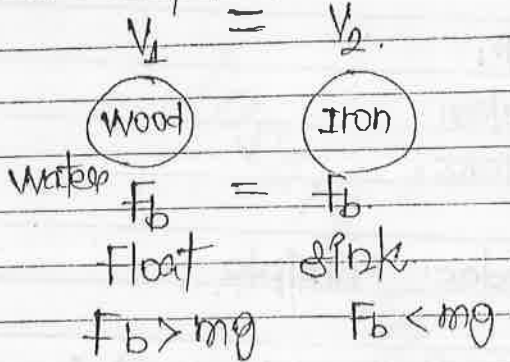 V₁ = V₂.
Wood Iron
Water
Fb = Fb.
Float sink.
Fb > mg Fb < mg